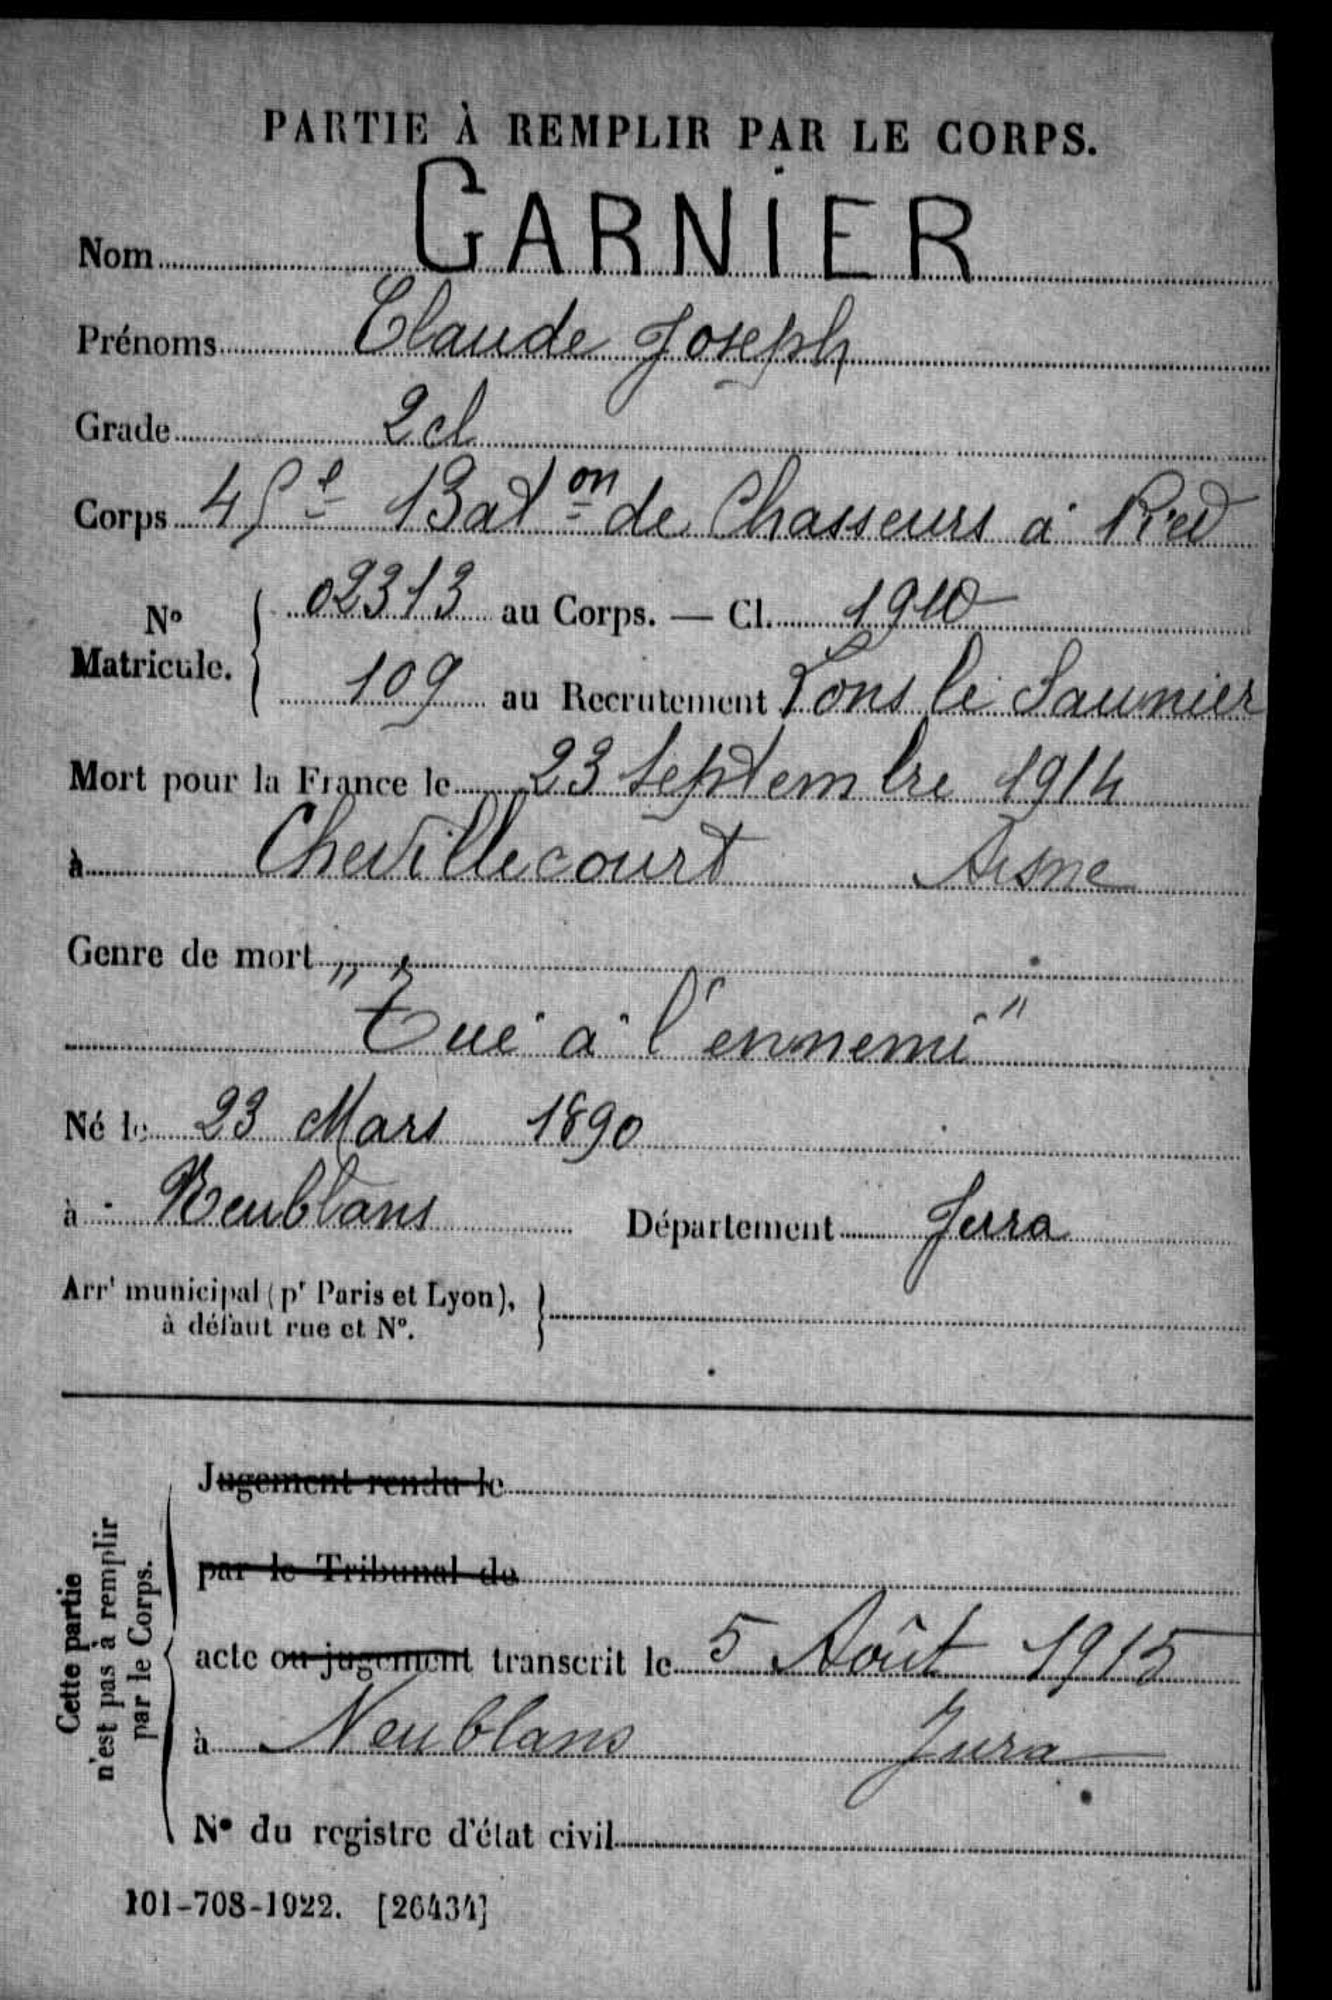 PARTIE À REMPLIR PAR LE CORPS.
Nom GARNIER
Prénoms Claude Joseph
Grade 2 cl
Corps 45e Bat on de Chasseurs à Pied
No Matricule. 02313 au Corps. — Cl. 1910
109 au Recrutement Lons le Saunier
Mort pour la France le 23 Septembre 1914
à Chevillecourt Aisne
Genre de mort
"Tué à l'ennemi"
Né le 23 Mars 1890
à Neublans Département Jura
Arrt municipal (pr Paris et Lyon),
à défaut rue et No.
Cette partie
n'est pas à remplir
par le Corps.
Jugement rendu le
par le Tribunal de
acte ou jugement transcrit le 5 Août 1915
à Neublans Jura
No du registre d'état civil
101-708-1922. [26434]